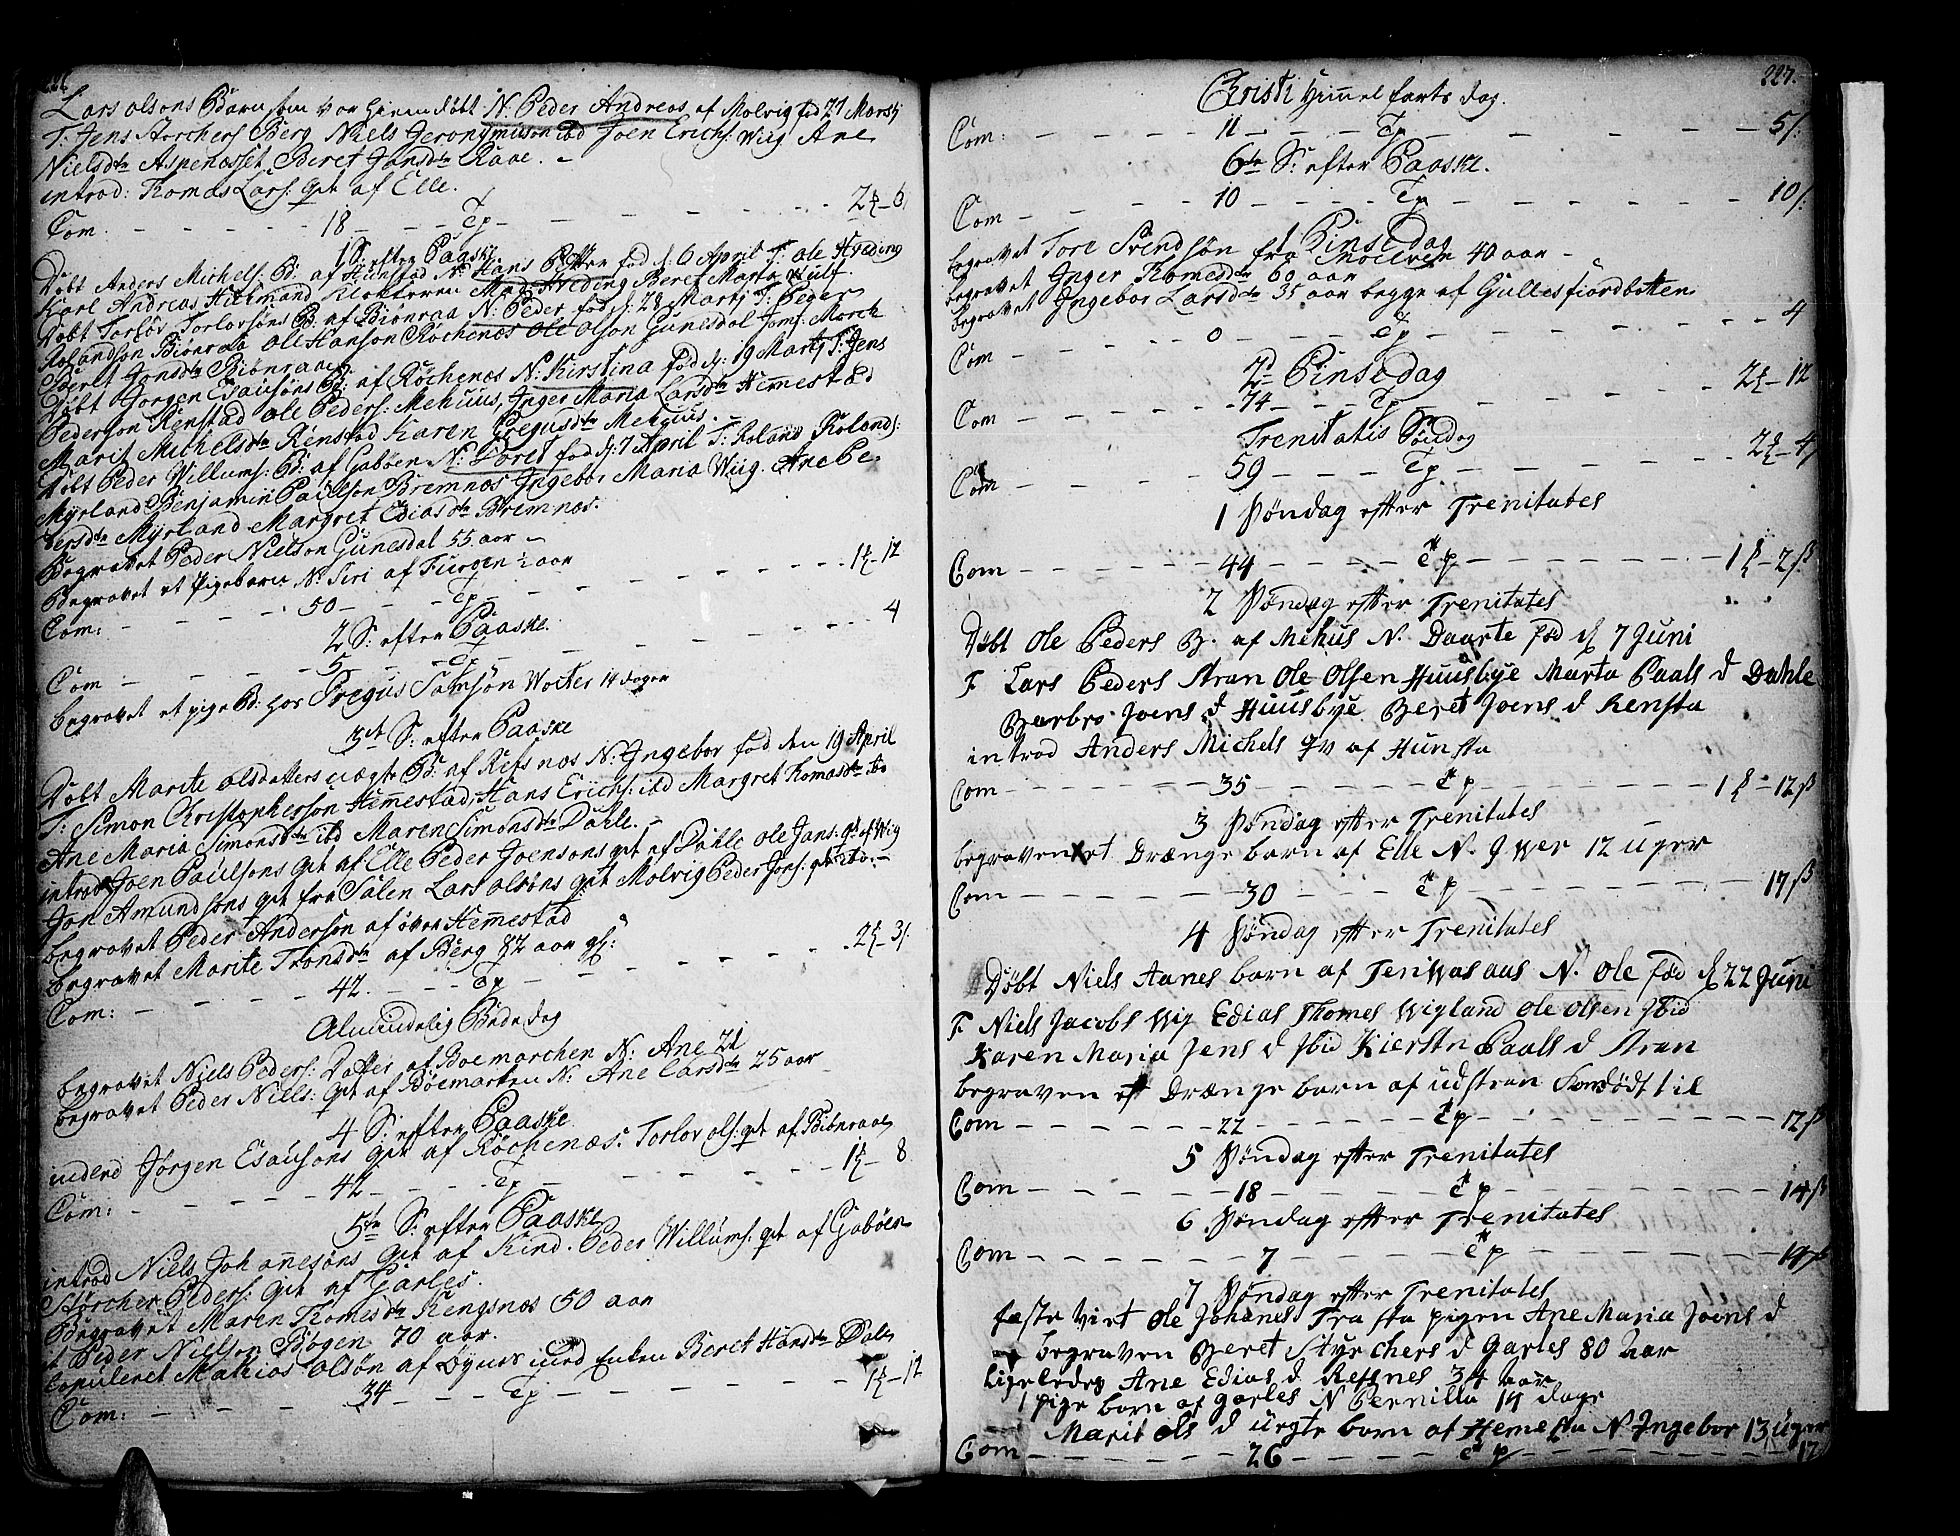 226
Lars olsons Barn som var hiemdöbt N. Peder Andreas af Molvig fød 27 Marsij
T: Jens Storchers: Berg Niels Jeronymuson ibd Joen Erichs: Wiig Ane
Nielsdtr Aspenæsset Beret Jonsdtr Raae. -
introd: Thomas Lars: qvt af Elle.
Com. 18 Tp 2 6
1 S: efter Paaske.
Döbt Anders Michels: B: af Hunstad N: Hans Petter fød d: 6 April T: ole Hveding
Karl Andreas Klokkeren Mad. Hveding Beret Marta Wulf.
Döbt Torlöv Torlovsöns B: af Biönraa N: Peder fød d: 28 Martij T: Peder
Rolandson Biönraa ole Hanson Röchenæs ole olson Gunesdal Jomf: Morch
Beret Jonsdtr Biönraae.
Döbt Jorgen Esausöns B: af Röchenæs N: Kirstina fød d: 19 Martij T: Jens
Pederson Renstad ole Peders: Mehuus, Inger Maria Larsdtr Hemestad
Marit Michelsdtr Renstad Karen Gregusdtr Mehuus.
Döbt Peder Willums: B: af Gaböen N: Doret fød d: 7 April T: Roland Rolands:
Myrland Benjamin Paulson Bremnæs Ingebor Maria Wiig. Ane Pe-
dersdtr Myrland Margret Ediasdtr Bremnæs.
Begravet Peder Nielson Gunesdal 55 aar
Begravet et Pigebarn N: Siri af Furgen ½ aar
Com: 50 Tp 1 12
2 S: efter Paaske.
Com 5 Tp 4
begravet et pige B: hos Gregus Samsön Wocter 14 dager
3de S: efter Paaske
Döbt Marite olsdatters uægte B: af Refsnæs N: Ingebor fød den 19 April
T: Simon Christophersön Hemestad, Hans Erichs: ibd Margret Thomasdtr ibd
Ane Maria Simonsdtr ibd Maren Simonsdtr Dahle. -
introd Joen Paulsons qvt af Elle Peder Joensons qvt af Dahle ole Jans: qvt af Wig
Jon Amundsöns qvt fra Salen Lars olsöns qvt Molvig Peder Jons: qvt ibd: -
begravet Peder Anderson af over Hemestad
begravet Marite Tronsdtr af Berg 82 aar gl:
Com: 42 Tp 2 3
Almindelig Bededag
begravet Niels Peders: Datter af Boemarchen N: Ane 21
begravet Peder Niels: qvt af Böemarken N: Ane Larsdtr 25 aar
4 S: efter Paaske
inderd Jörgen Esausons qvt af Röchenæs. Torlov ols: qvt af Biönraae
Com: 42 Tp 1 8
5te S: efter Paaske
introd Niels Johanesöns qvt af Kind. Peder Willums: qvt af Gaböen
Störcher Peders: qvt af Garles.
Begravet Maren Thomesdtr Kengsnæs 50 aar
Peder Nielson Bogen 70 aar.
Copuleret Mathias olsön af Synes med Enken Beret Hansdtr Dale
Com: 34 Tp 1 12
227.
Christi Himmel farts dag.
Com: 11 Tp 5
6te S: efter Paaske.
Com 10 Tp 10
1 Pinsedag
begravet Tore Svendsön fra 40 aar -
begravet Inger Thomesdtr 60 aar
begravet Ingebor Larsdtr 35 aar begge af Gullesfiordbotten
Com 0 Tp 4
2d Pinsedag
Com 74 Tp 2 12
Trenitatis Söndag
Com 59 Tp 2 4
1 Söndag efter Trenitates
Com 44 Tp 1 2 ß
2 Söndag efter Trenitates
Döbt Ole Peders B. af Mehus N. Daarte fød d 7 Juni
F Lars Peders Stran Ole Olsen Huusbye Marta Paals d Dahle
Berbro Joens d Huusbye Beret Joens d Rensta
introd Anders Michels qv af Hunsta
Com 35 Tp 1 12 ß
3 Söndag efter Trenitates
begraven et Drænge barn af Elle N. Iwer 12 uger
Com 30 Tp 17 ß
4 Söndag efter Trenitates
Döbt Niels Aanes barn af Tenwasaas N. Ole fød d 22 Juni
F. Niels Jacobs Wig Edias Thomes Wigland ole olsen Ibid
Karen Maria Jens d Ibid Kierstn Paals d Stran
begraven et Drænge barn af udstran Samdödt til
Com 22 Tp 12 ß
5 Söndag efter Trenitates
Com 18 Tp 14 ß
6 Söndag efter Trenitates
Com 7 Tp 14 ß
7 Söndag efter Trenitates
fæste Viet Ole Johanes Trasta pigen Ane Maria Joens d
begraven Beret Styrchers d Garles 80 aar
ligeledes Ane Edias d Refsnes 34 aar
1 pige barn af garles N Pernilla 14 dage
Marit ols d uegte barn af Hemesta N Ingebor 13 uger
Com 26 Tp 12